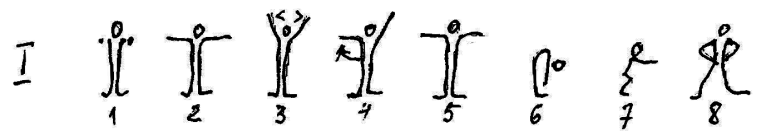 I
1 2 3 4 5 6 7 8